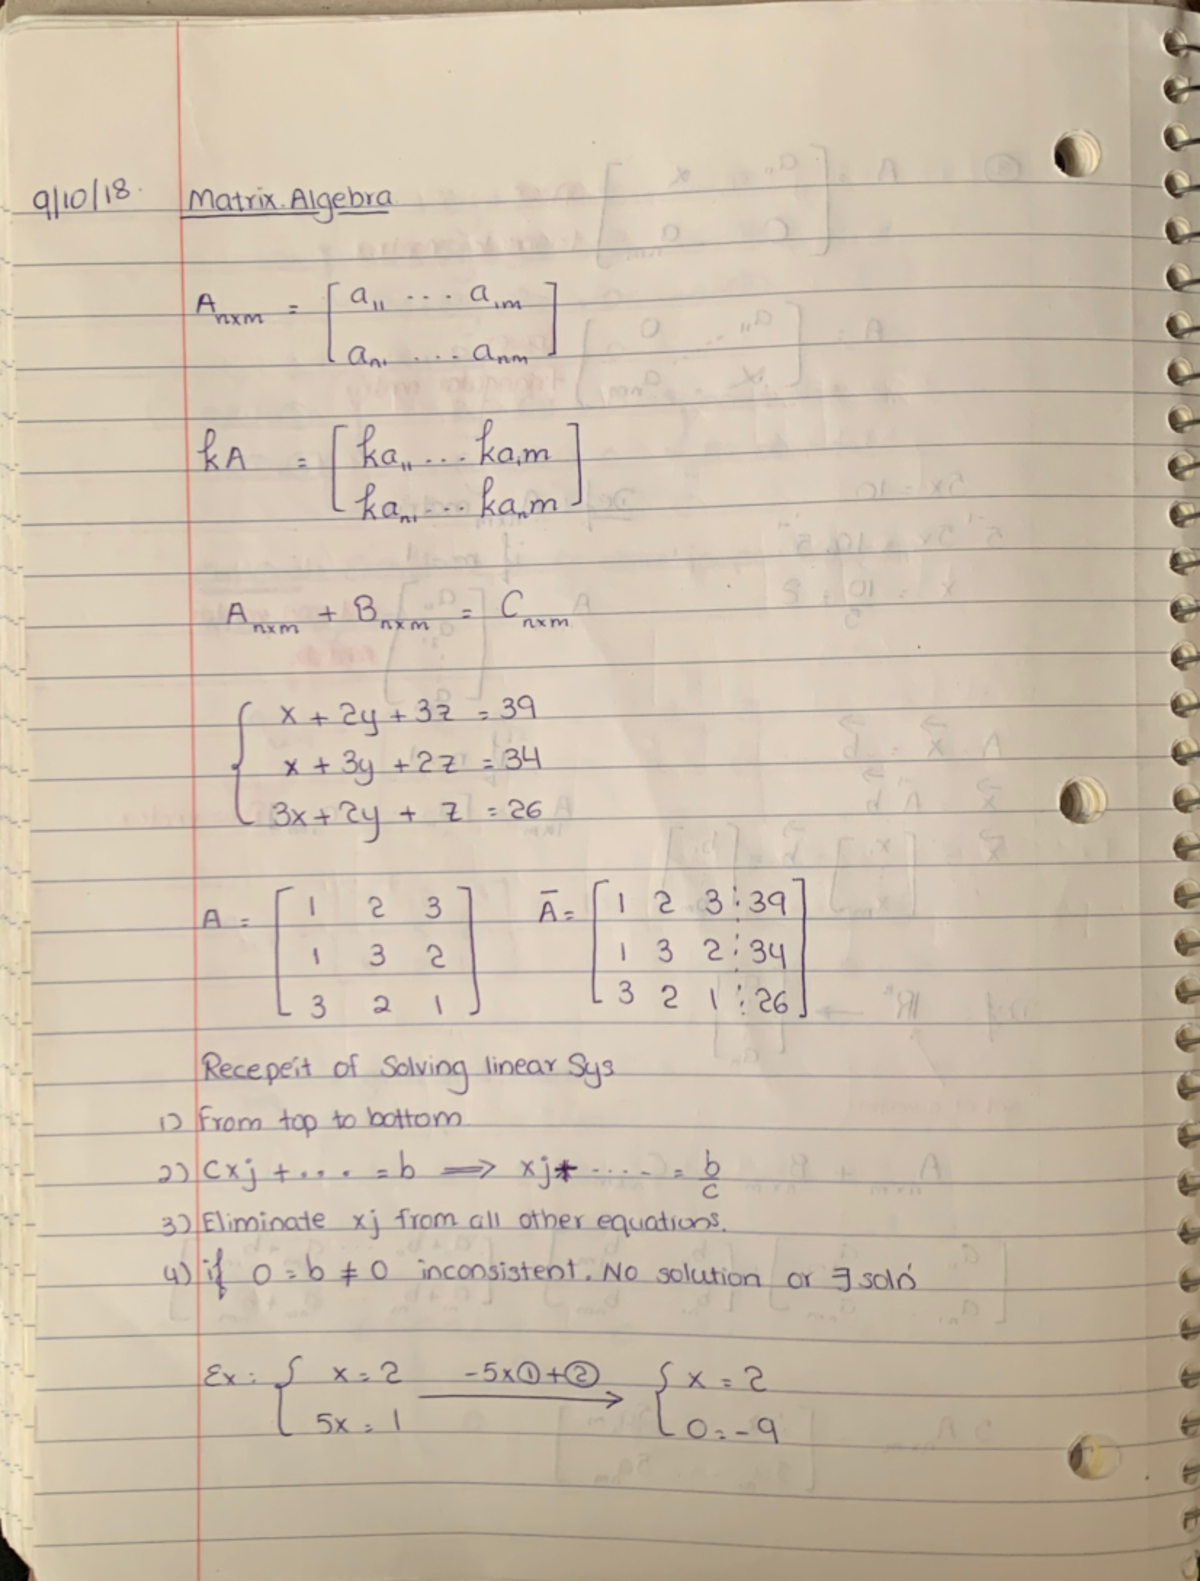 9/10/18. Matrix Algebra
A_nxm = [ a_11 ... a_1m
a_n1 ... a_nm ]
kA = [ ka_11 ... ka_1m
ka_n1 ... ka_nm ]
A_nxm + B_nxm = C_nxm
{ x + 2y + 3z = 39
x + 3y + 2z = 34
3x + 2y + z = 26
A = [ 1 2 3 Ā = [ 1 2 3 ⋮ 39 ]
1 3 2 1 3 2 ⋮ 34
3 2 1 ] 3 2 1 ⋮ 26 ]
Recepeit of Solving linear Sys
1) From top to bottom
2) Cxj + ... = b ⟹ xj + ..... = b/c
3) Eliminate xj from all other equations.
4) if 0 = b ≠ 0 inconsistent. No solution or ∃ soln
Ex: { x = 2 -5x①+② → { x = 2
5x = 1 0 = -9